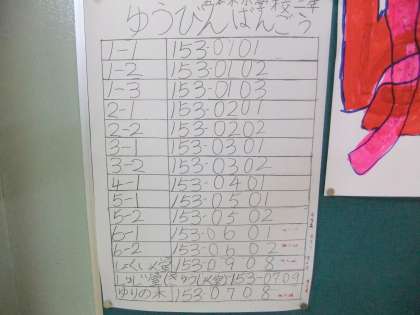 五本木小学校二年
ゆうびんばんごう
1-1 153-0101
1-2 153-0102
1-3 153-0103
2-1 153-0201
2-2 153-0202
3-1 153-0301
3-2 153-0302
4-1 153-0401
5-1 153-0501
5-2 153-0502
6-1 153-0601
6-2 153-0602
153-0908
153-0909
ゆりの木 153-0708